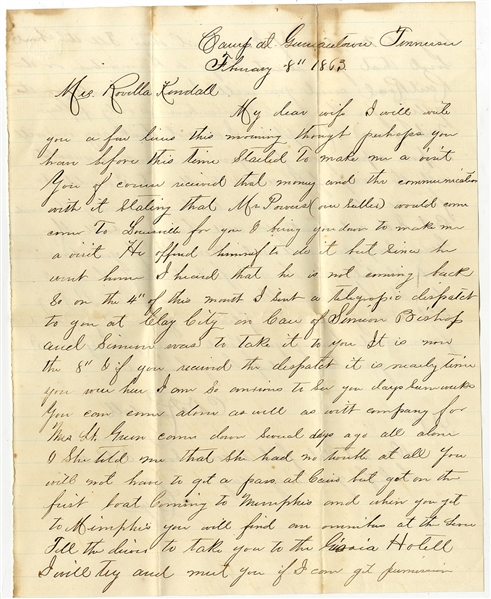 Camp at Germantown Tennessee
February 8" 1863
Mrs. Rovilla Kendall
My dear wife I will write
you a few lines this morning though perhaps you
have before this time started to make me a visit
You of course receivd that money and the communication
with it stating that Mr Powers (our Sutler) would come
come to Louisville for you & bring you down to make me
a visit He offerd himself to do it but since he
went home I heard that he is not coming back
So on the 4" of this month I sent a telegrapic dispatch
to you at Clay City in Care of Simeon Bishop
and Simeon was to take it to you It is now
the 8" & if you receivd the dispatch it is nearly time
you were here I am so anxious to see you days seem weeks
You can come alone as well as with company for
Mrs Lt. Green come down several days ago all alone
& She told me that she had no trouble at all You
will not have to get a pass at Cairo but get on the
first boat Coming to Memphis and when you get
to Memphis you will find an omnibus at the
Tell the driver to take you to the Hotell
I will try and meet you if I can get permission